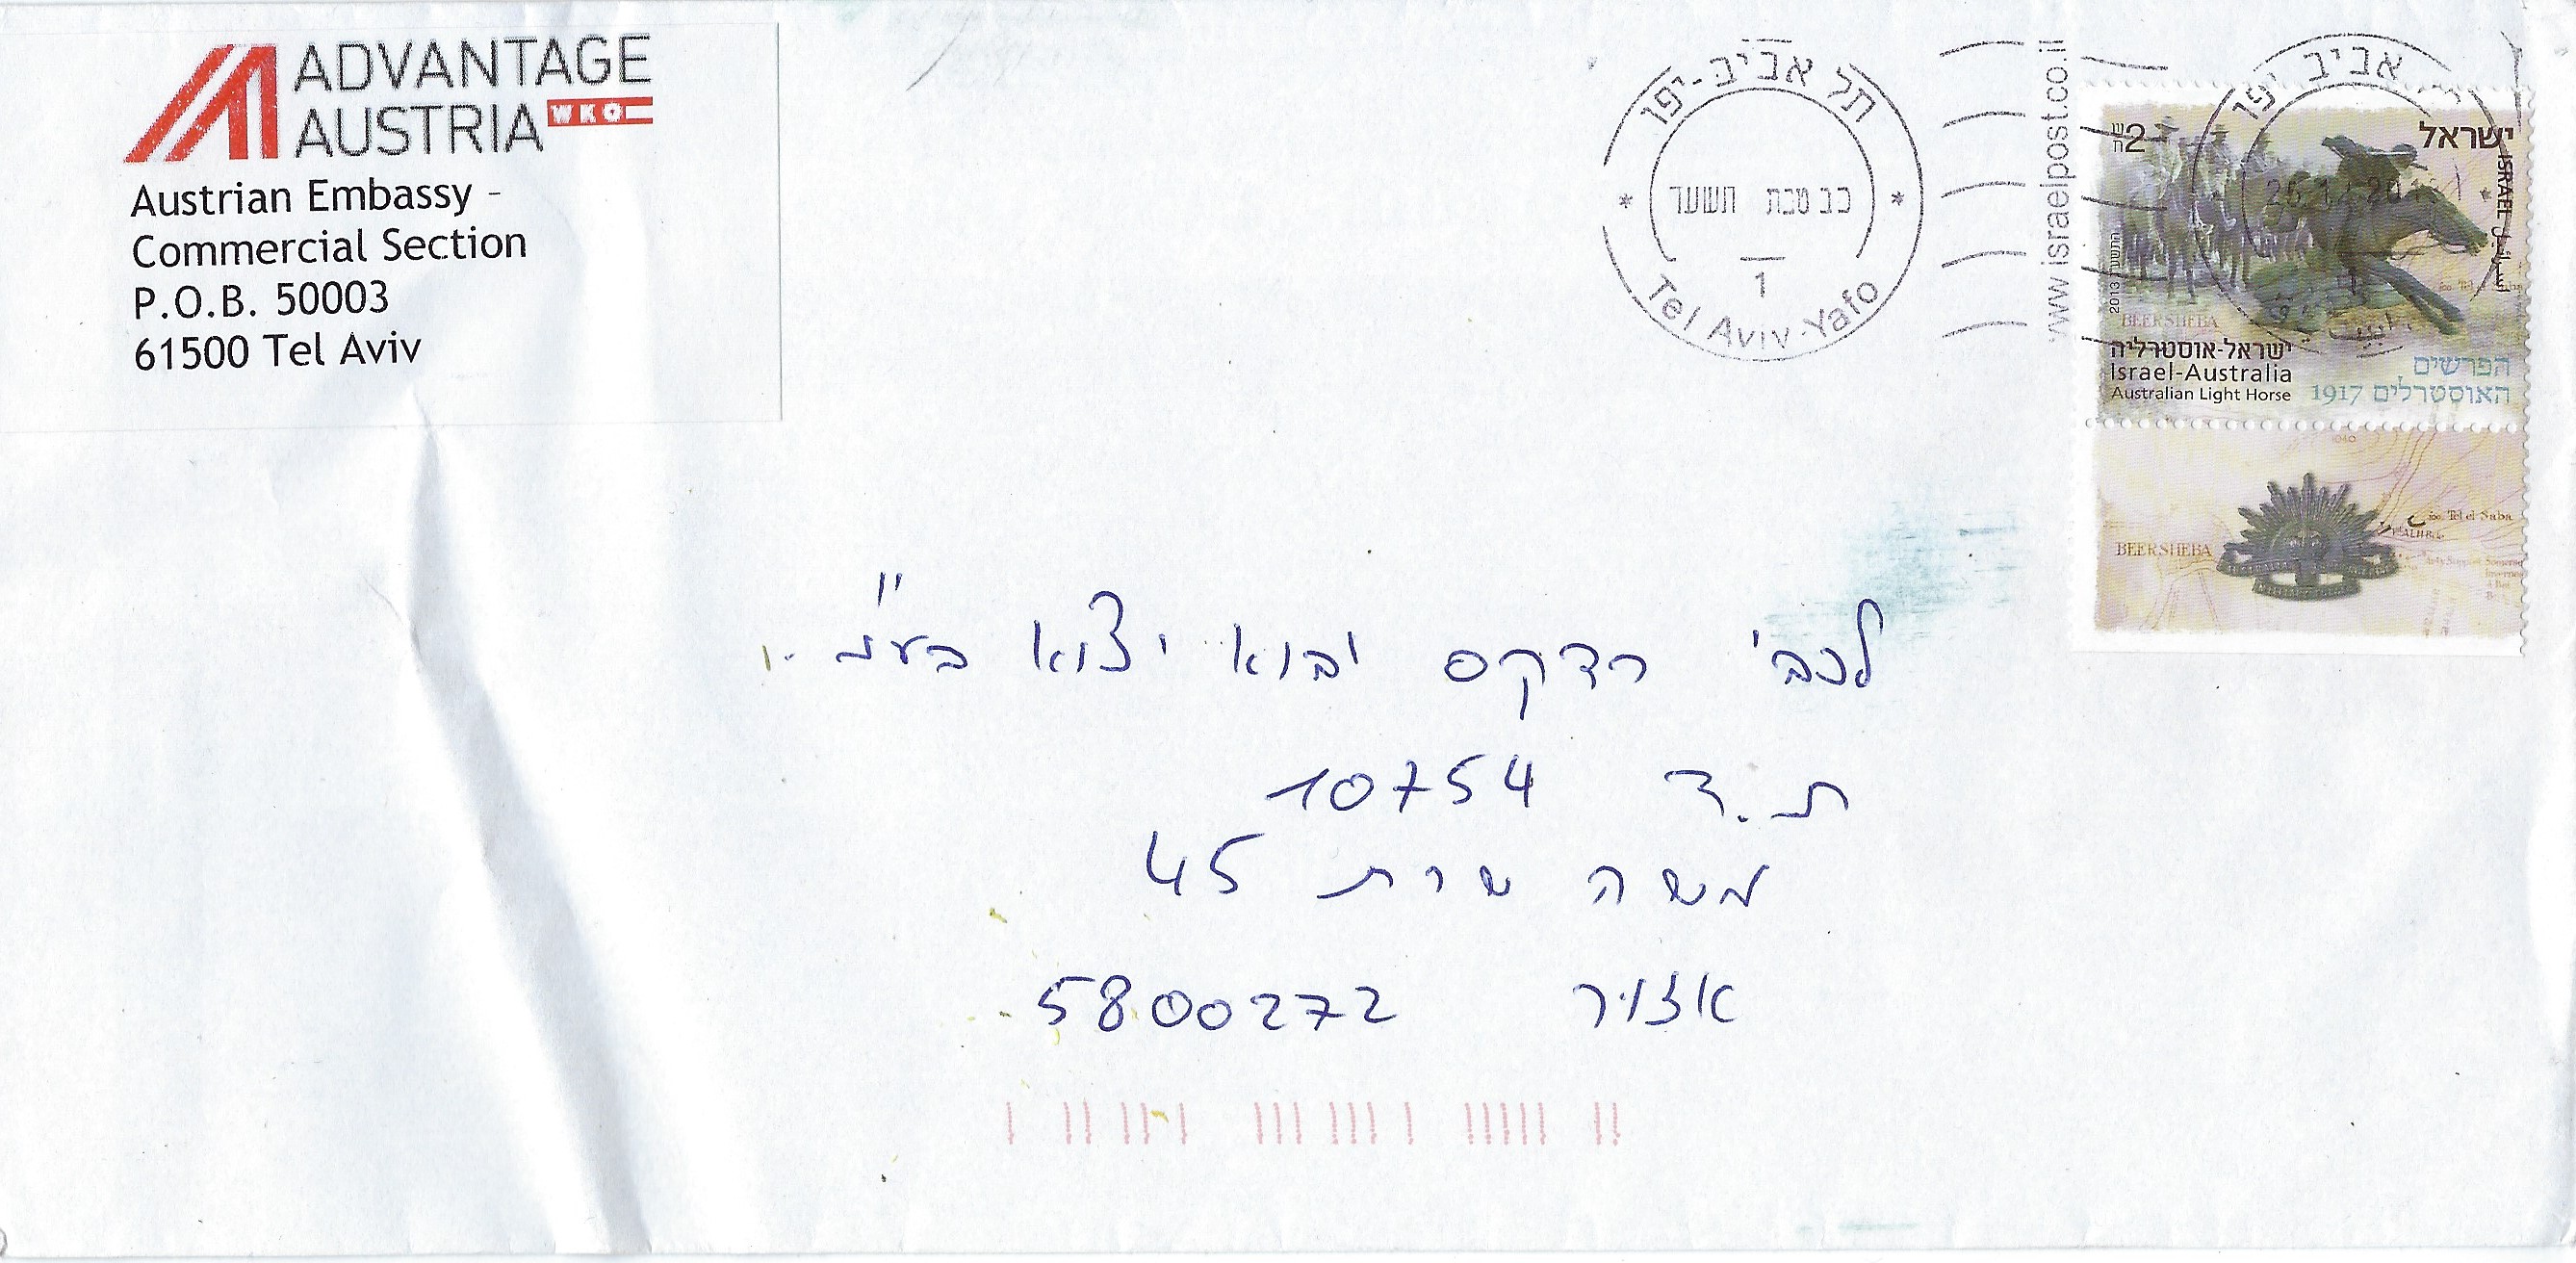 ADVANTAGE
AUSTRIA WKO
Austrian Embassy -
Commercial Section
P.O.B. 50003
61500 Tel Aviv
תל אביב-יפו
כב טבת תשעד
1
Tel Aviv-Yafo
www.israelpost.co.il
אביב יפו
2 ש"ח
ישראל
ISRAEL
اسرائيل
2013 התשע"ד
BEERSHEBA
ישראל-אוסטרליה
Israel-Australia
Australian Light Horse
הפרשים
האוסטרלים 1917
1040
Tel el Saba
BEERSHEBA
לכב' רדקס יבוא יצוא בע"מ
ת.ד 10754
משה שרת 45
אזור 5800272